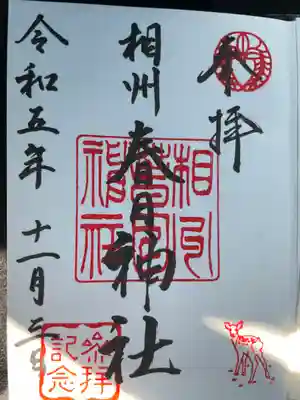 奉拝
相州 春日神社
令和五年 十一月三日
相州春日神社
参拝記念